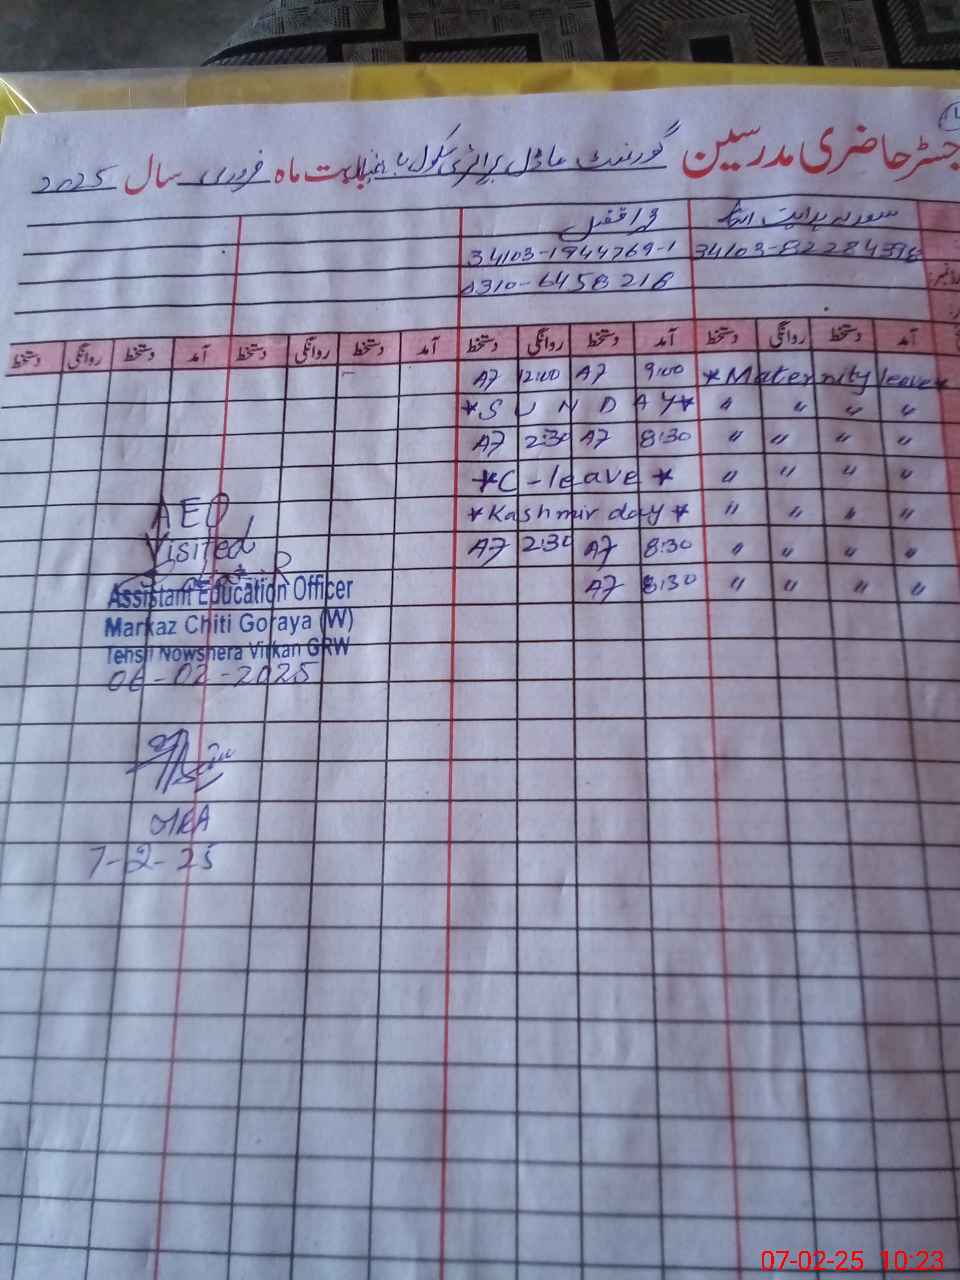 رجسٹر حاضری مدرسین گورنمنٹ ماڈل پرائمری سکول بابت ماہ فروری سال 2025
34103-1944769-1 34103-8228439
0310-6458216
آمد دستخط روانگی دستخط آمد دستخط روانگی دستخط آمد دستخط روانگی دستخط آمد دستخط روانگی دستخط
A7 12:00 A7 9:00 *Maternity leave*
*SUNDAY* " " " "
A7 2:30 A7 8:30 " " " "
*C-leave* " " " "
*Kashmir day* " " " "
A7 2:30 A7 8:30 " " " "
A7 8:30 " " " "
AEO
Visited
Assistant Education Officer
Markaz Chiti Goraya (W)
Tehsil Nowshera Virkan GRW
06-02-2025
MEA
7-2-25
07-02-25 10:23